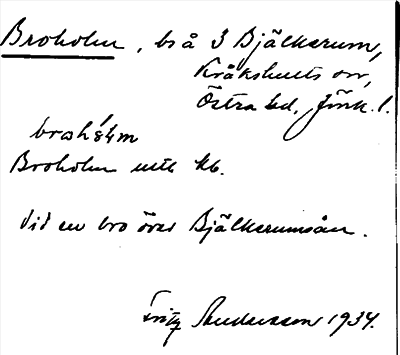 Broholm, bs å 3 Bjälkerum,
Kråkshults sn,
Östra hd, Jönk. l.
Broholm utt kb.
Vid en bro över Bjälkerumsån.
Fritz 1934.